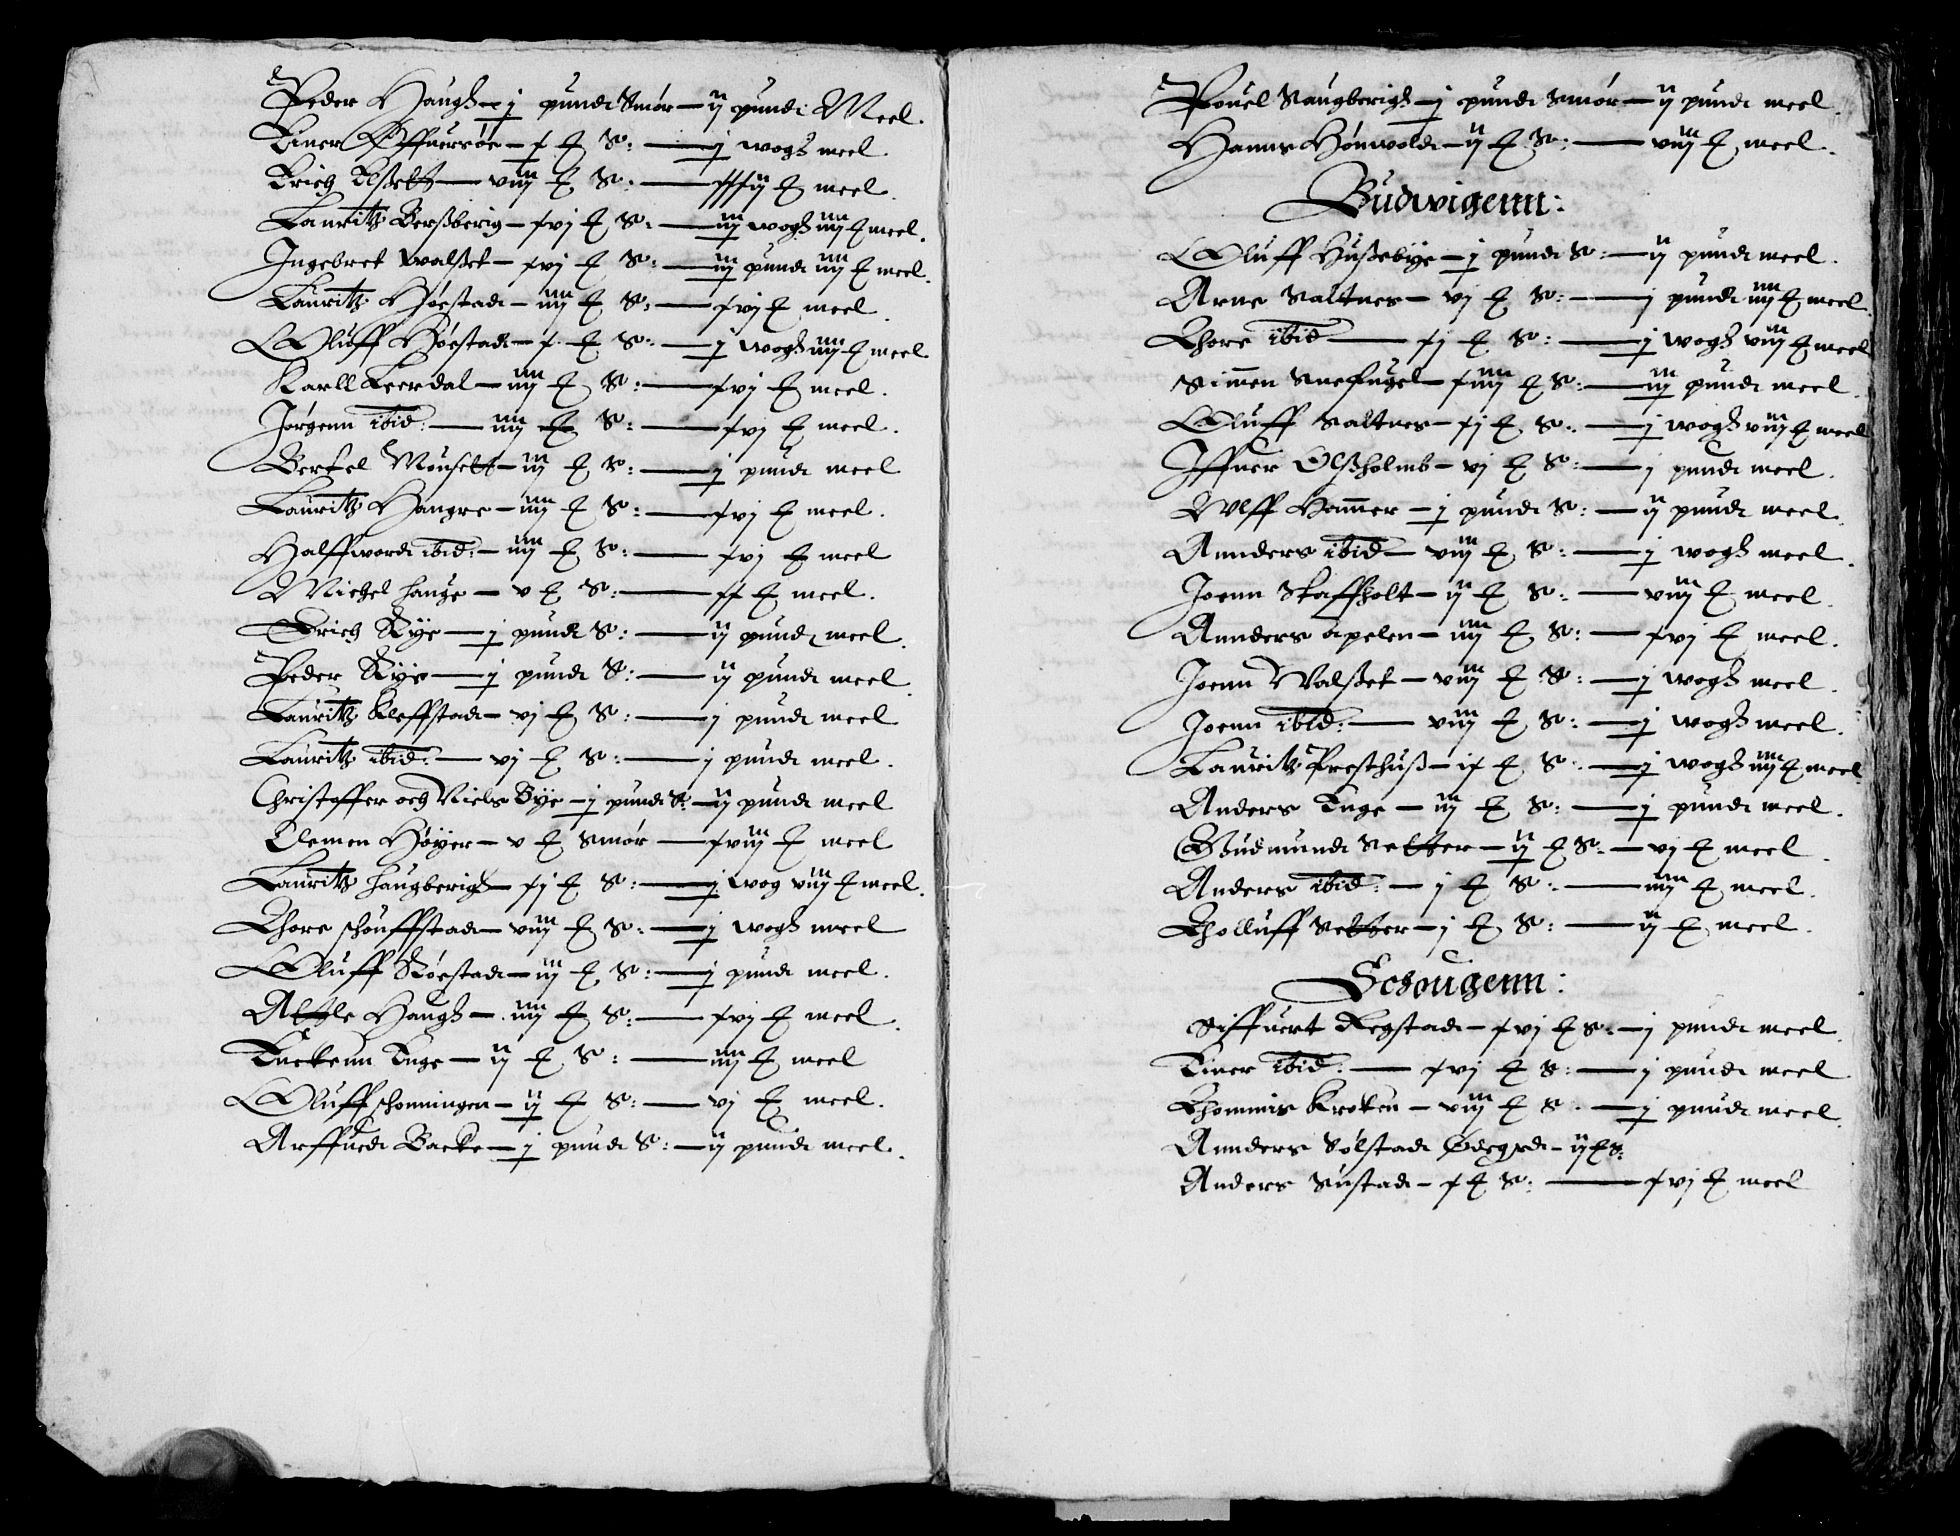 Peder Haugh – j pundt Smør – ij pundt Meel.
Einer Øffuersøe – x ℔ S: – j wogh meel.
Erich Elset – viij ℔ S: – xxxij ℔ meel.
Lauritz Berssberig – xvj ℔ S: – iij wogh iiij ℔ meel.
Ingebret walsset – xvj ℔ S: – iij pundt iiij ℔ meel.
Lauritz Høestadt – iiij ℔ S: – xvj ℔ meel.
Oluff Høestadt – x ℔ S: – j wogh iiij ℔ meel
Karll Leerdal – iiij ℔ S: – xvj ℔ meel.
Jørgenn ibid: – iiij ℔ S: – xvj ℔ meel.
Bertel Mousett – iij ℔ S: – j pundt meel
Lauritz Hangre – iiij ℔ S: – xvj ℔ meel.
Halffword ibid: – iiij ℔ S: – xvj ℔ meel
Michel hauge – v ℔ S: – xx ℔ meel.
Erich Rye – j pundt S: – ij pundt meel.
Peder Rye – j pundt S: – ij pundt meel.
Lauritz Kleffstadt – vj ℔ S: – j pundt meel
Lauritz ibid: – vj ℔ S: – j pundt meel.
Christoffer och Niels Bye – j pundt S: – ij pundt meel
Clemen Høyer – v ℔ Smør – xviij ℔ meel
Lauritz haugberigh – xj ℔ S: – j wog viij ℔ meel.
Thore schouffstadt – viij ℔ S: – j wogh meel
Oluff Røestadt – iij ℔ S: – j pundt meel.
Attle Haugh – iiij ℔ S: – xvj ℔ meel.
Enckenn Enge – ij ℔ S: – iiij ℔ meel
Oluff schonningen – ij ℔ S: – vj ℔ meel.
Arffuedt Backe – j pundt S: – ij pundt meel.
Pouel Saugberigh – j pundt Smør – ij pundt meel.
Hanns Hønwoldt – ij ℔ S: – viij ℔ meel.
Budwigenn:
Oluff Hussebye – j pundt S: – ij pundt meel.
Arne Saltnes – vj ℔ S: – j pundt iiij ℔ meel
Thore ibid – xj ℔ S: – j wogh viij ℔ meel
Simen Snefugel – xiiij ℔ S: – iij pundt meel.
Oluff Saltnes – xj ℔ S: – j wogh viij ℔ meel
Iffuer Olssholmb – vj ℔ S: – j pundt meel.
Wlff Hammer – j pundt S: – ij pundt meel.
Annders ibid – viij ℔ S: – j wogh meel.
Joenn Skaffholt – ij ℔ S: – viij ℔ meel.
Annders Apelen – iiij ℔ S: – xvj ℔ meel.
Joenn Walsset – viij ℔ S: – j wogh meel.
Joenn ibid: – viij ℔ S: – j wogh meel.
Lauritz Presthuss – ix ℔ S: – j wogh iiij ℔ meel.
Anders Enge – iij ℔ S: – j pundt meel.
Gudmundt Setter – ij ℔ S: – vj ℔ meel.
Anders ibid: – j ℔ S: – iiij ℔ meel.
Tholluff Setter – j ℔ S: – ij ℔ meel.
Schougenn:
Siffuert Regstadt – xvj ℔ S: – j pundt meel.
Einer ibid: – xvj ℔ S: – j pundt meel.
Thommis Kroken – viij ℔ S: – j pundt meel.
Annders Sølstadt Ødegrd – ij ℔ S:
Anders Sustadt – x ℔ S: – xvj ℔ meel